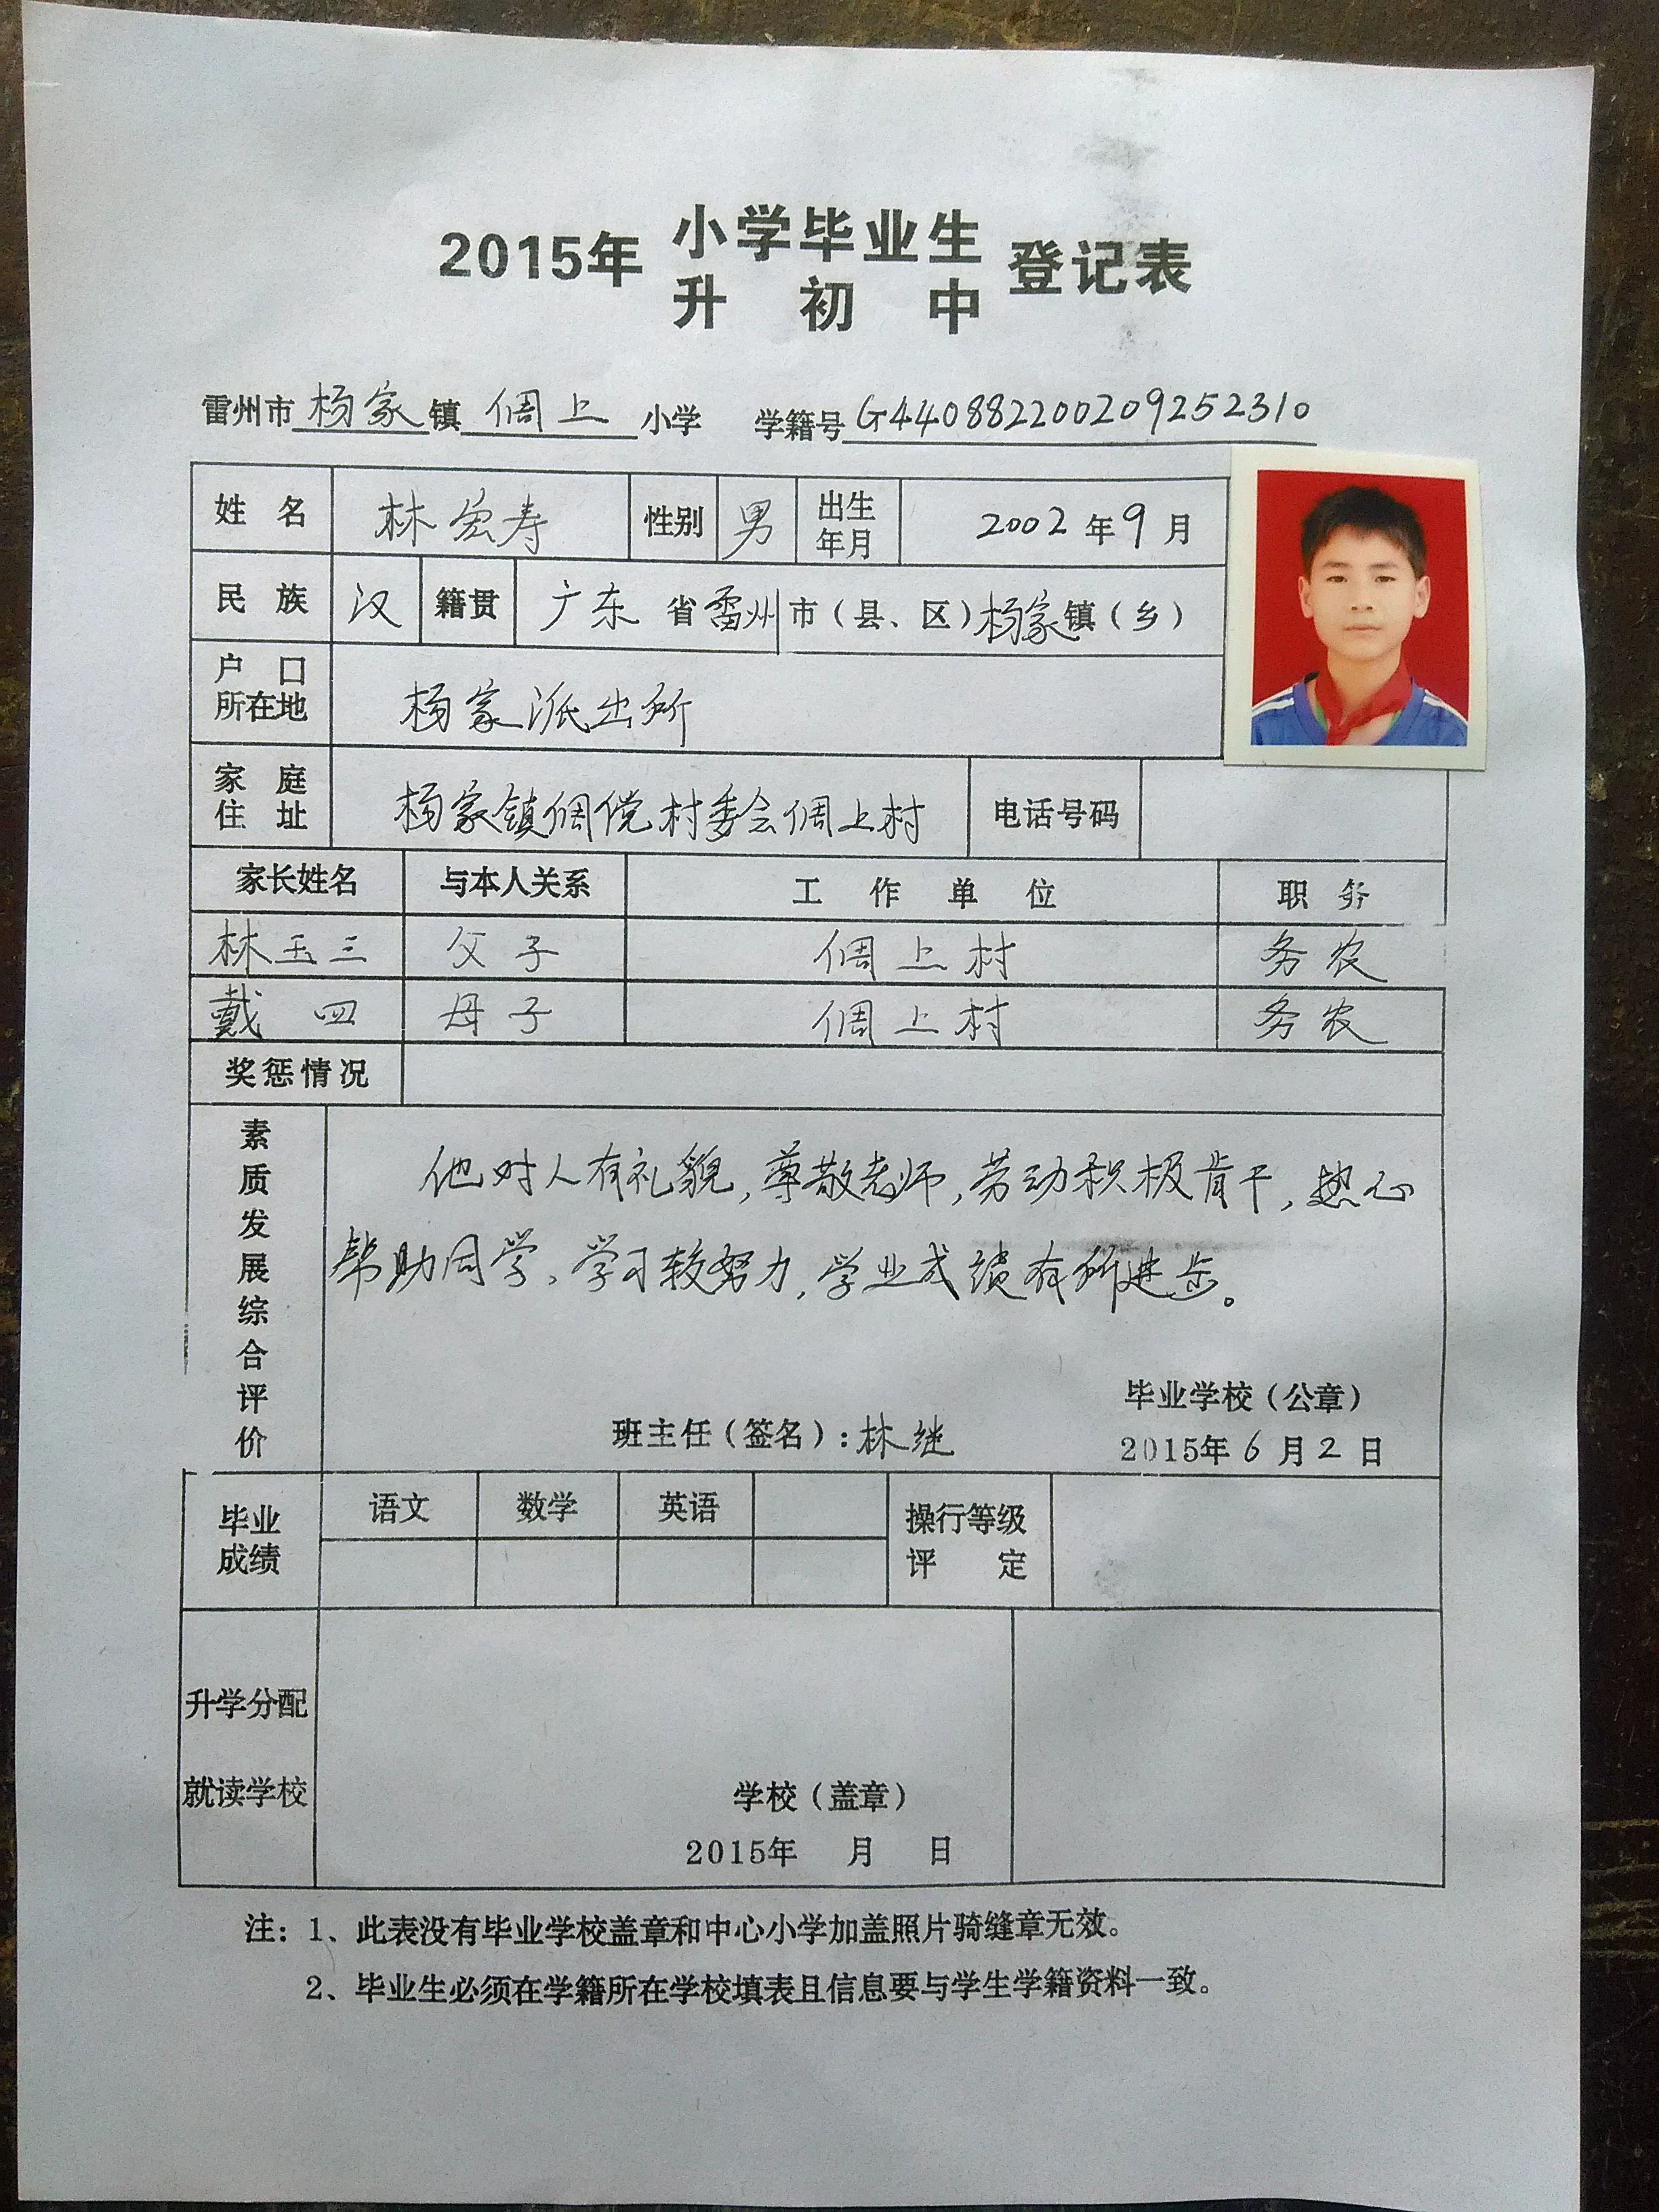 2015年 小学毕业生 登记表
升初中
雷州市 杨家 镇 倜上 小学 学籍号 G440882200209252310
姓名 林宏寿 性别 男 出生年月 2002年9月
民族 汉 籍贯 广东省雷州市(县、区)杨家镇(乡)
户口所在地 杨家派出所
家庭住址 杨家镇倜傥村委会倜上村 电话号码
家长姓名 与本人关系 工作单位 职务
林玉三 父子 倜上村 务农
戴四 母子 倜上村 务农
奖惩情况
素质发展综合评价
他对人有礼貌,尊敬老师,劳动积极肯干,热心
帮助同学,学习较努力,学业成绩有所进步。
毕业学校(公章)
班主任(签名):林继 2015年6月2日
毕业成绩 语文 数学 英语 操行等级评定
升学分配
就读学校 学校(盖章)
2015年 月 日
注:1、此表没有毕业学校盖章和中心小学加盖照片骑缝章无效。
2、毕业生必须在学籍所在学校填表且信息要与学生学籍资料一致。